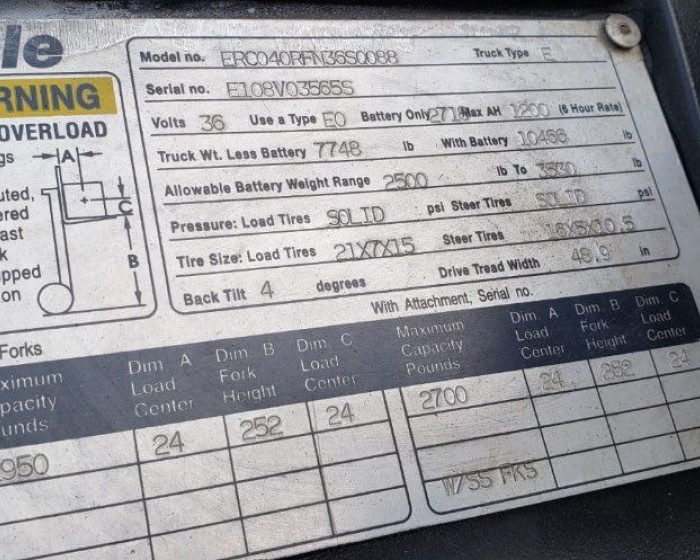 le
RNING
OVERLOAD
gs
A
uted,
ered
ast
k
pped
on
C
B
Model no. ERC040RFN36S0088 Truck Type E
Serial no. E108V03565S
Volts 36 Use a Type EO Battery Only 2718 Max AH 1200 (6 Hour Rate)
Truck Wt. Less Battery 7748 lb With Battery 10466 lb
Allowable Battery Weight Range 2500 lb To 3530 lb
Pressure: Load Tires SOLID psi Steer Tires SOLID psi
Tire Size: Load Tires 21X7X15 Steer Tires 16X5X10.5
Back Tilt 4 degrees Drive Tread Width 48.9 in
With Attachment, Serial no.
Forks
ximum pacity unds Dim. A Load Center Dim. B Fork Height Dim. C Load Center Maximum Capacity Pounds Dim. A Load Center Dim. B Fork Height Dim. C Load Center
950 24 252 24 2700 24 252 24
W/SS FKS